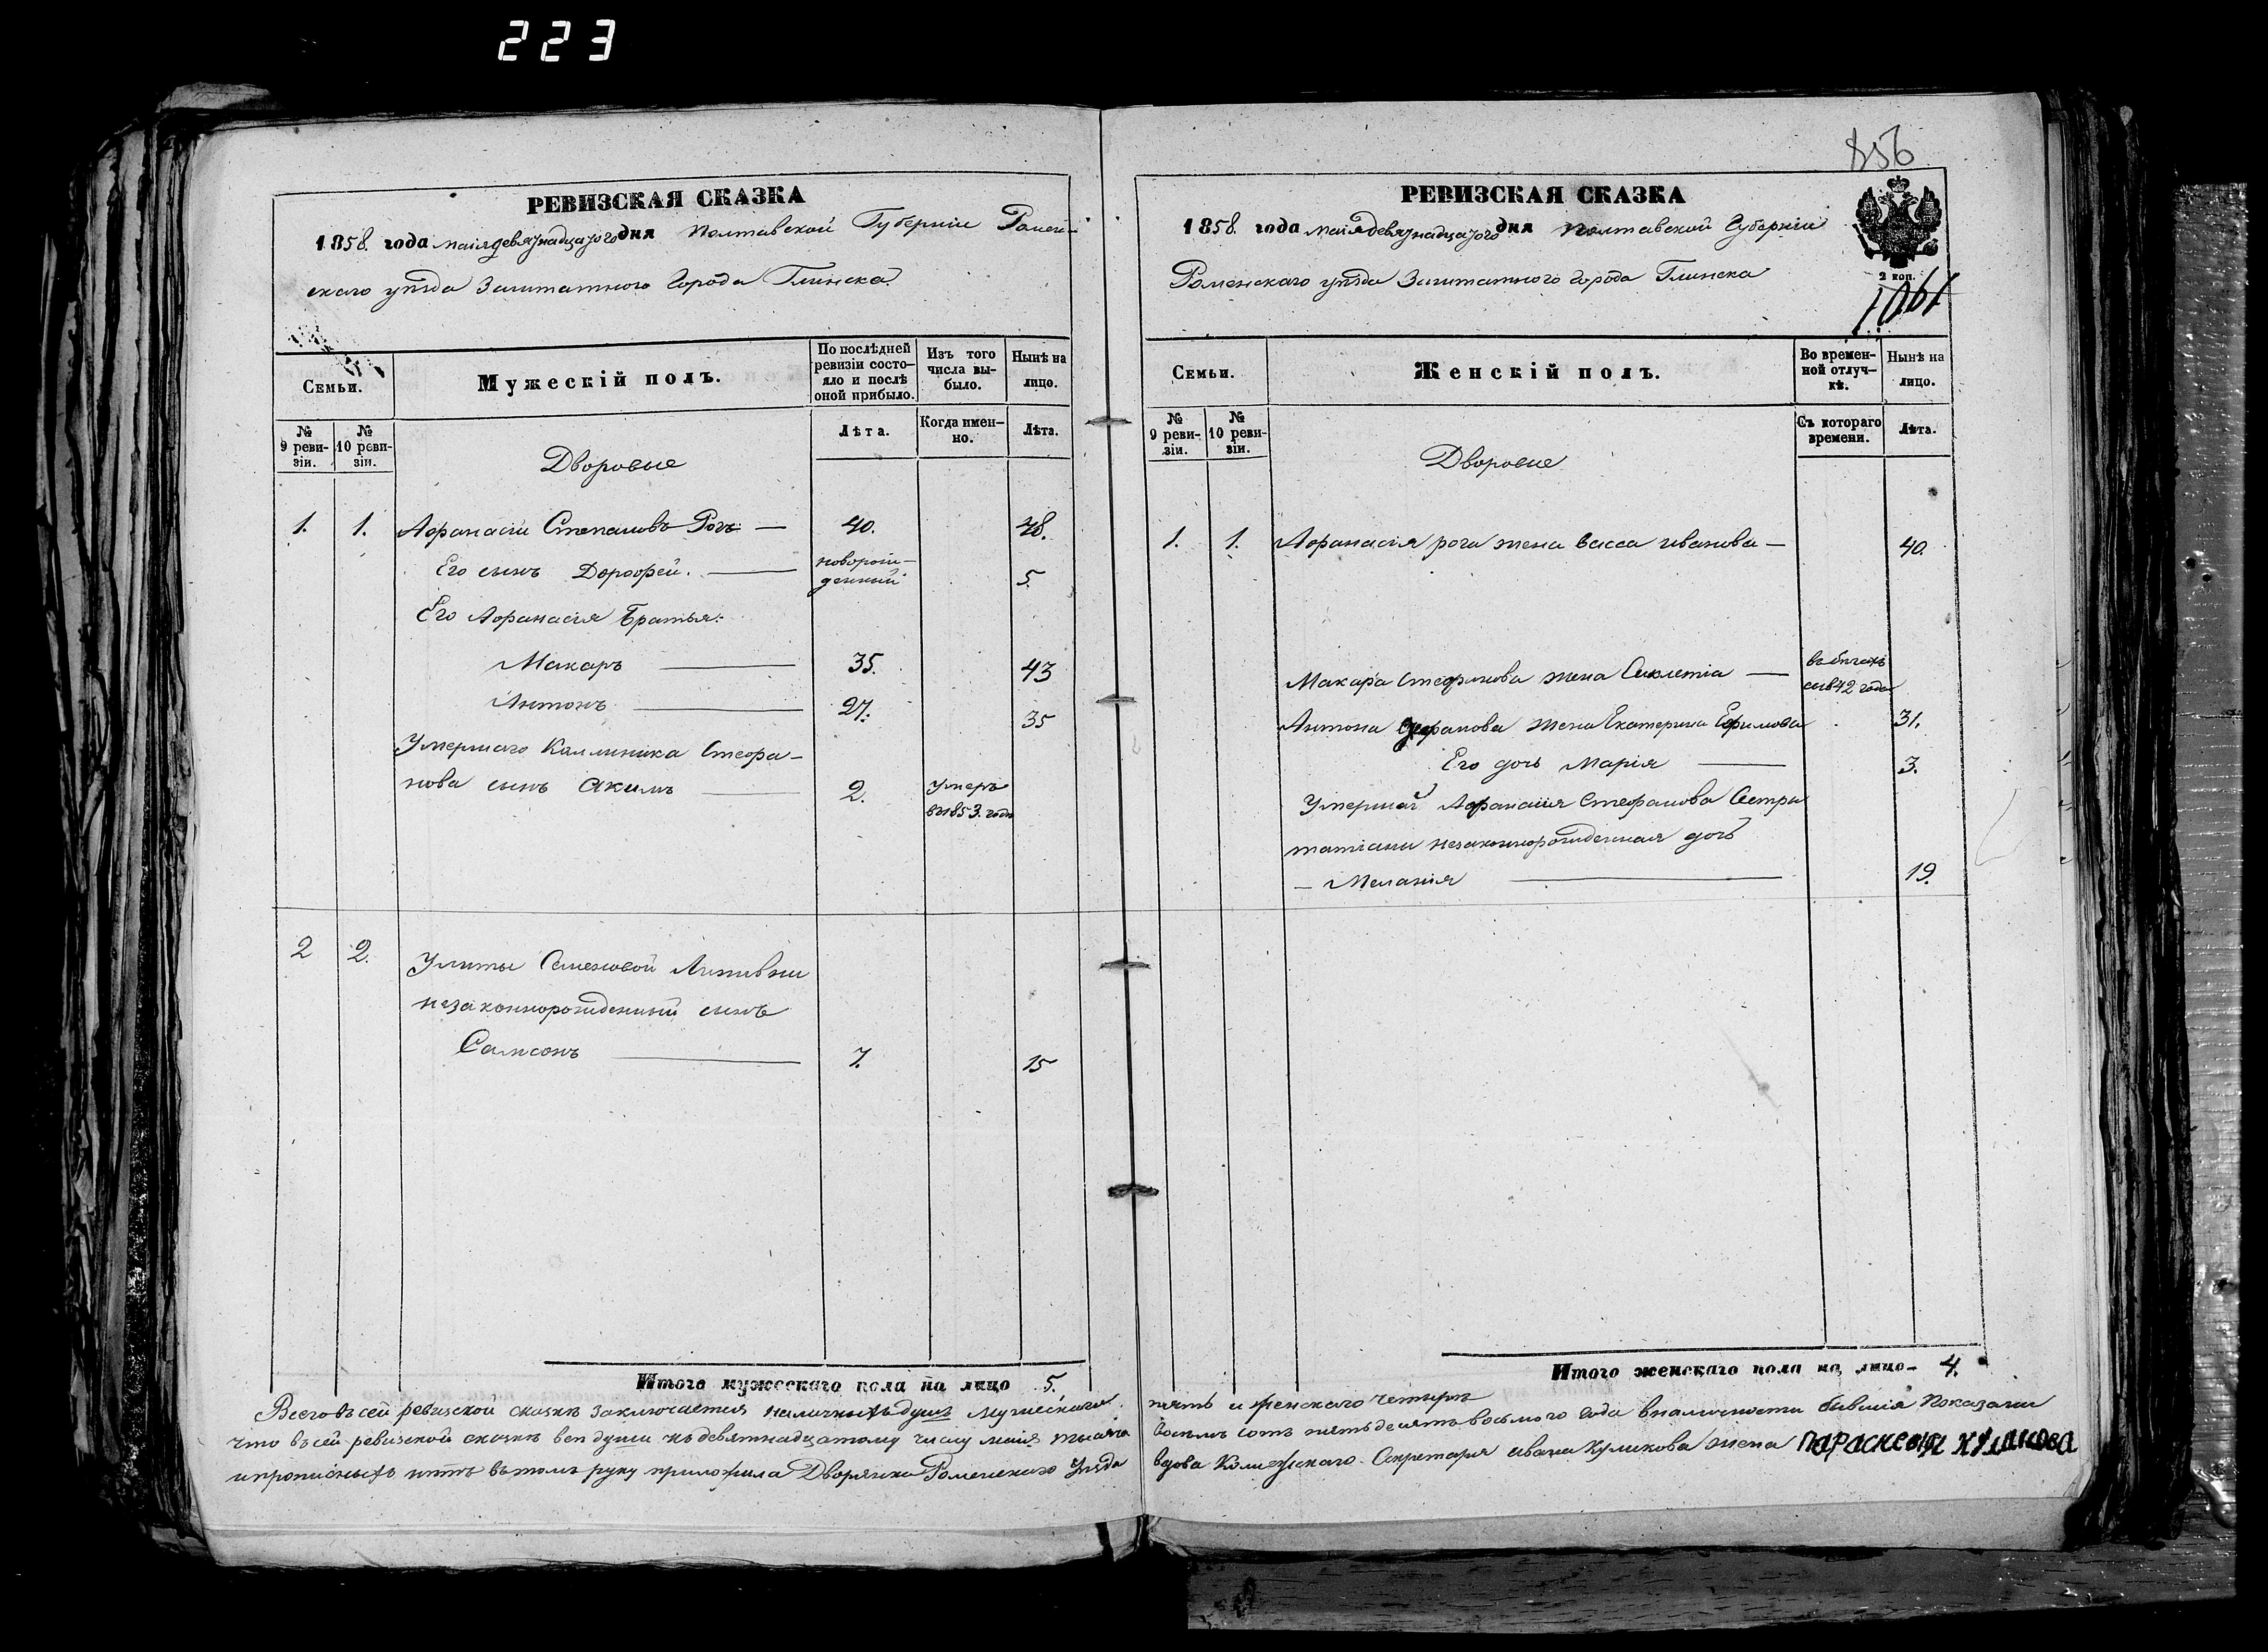 223
856
РЕВИЗСКАЯ СКАЗКА
1858. года маія девятнадцатого дня Полтавской Губерніи Ромен-
скаго уѣзда Заштатного Города Глинска
Семьи.
Мужескій полъ.
По послѣдней ревизіи состо-
яло и послѣ оной прибыло.
Изъ того числа вы-
было.
Нынѣ на лицо.
№ 9 реви-
зіи.
№ 10 реви-
зіи.
Лѣта.
Когда имен-
но.
Лѣта.
Дворовые
1. 1. Афанасій Степановъ Рогъ — 40. 48.
Его сынъ Дорофей. — новорож-
денный 5.
Его Афанасія Братья:
Макаръ — 35. 43
Антонъ — 27. 35
Умершаго Каллиника Стефа-
нова сынъ Акимъ — 2. Умеръ
в 1853. годе
2 2. Улиты Семеновой
незаконнорожденный сынъ
Самсонъ — 7. 15
Итого мужескаго пола на лицо 5.
РЕВИЗСКАЯ СКАЗКА
1858 года маія девятнадцатого дня Полтавской Губерніи
Роменскаго уѣзда Заштатного города Глинска
2 коп.
1061
Семьи.
Женскій полъ.
Во времен-
ной отлуч-
кѣ.
Нынѣ на лицо.
№ 9 реви-
зіи.
№ 10 реви-
зіи.
Съ котораго времени.
Лѣта.
Дворовые
1. 1. Афанасія рога жена васса иванова — 40.
Макара Стефанова жена Сиклетіа — въ бегахъ
съ 1842 года
Антона Стефанова жена Екатерина Ефимова 31.
Его дочь Марія — 3.
Умершаг Афанасія Стефанова Сестры
татіаны незаконнорожденная дочь
— Меланія — 19.
Итого женскаго пола на лицо — 4.
Всего въ сей ревизской сказкѣ заключается наличныхъ душъ мужескаго пять и женскаго четыре
что въ сей ревизской сказкѣ все души къ девятнадцатому числу маія тысяча восемь сотъ пятьдесятъ восьмого года вналичности бывшія показаны
и прописныхъ нѣтъ въ томъ руку приложила Дворянка Роменскаго Уѣзда вдова Колежскаго Секретаря ивана Куликова жена ПАРАСКЕВИЯ КУЛИКОВА